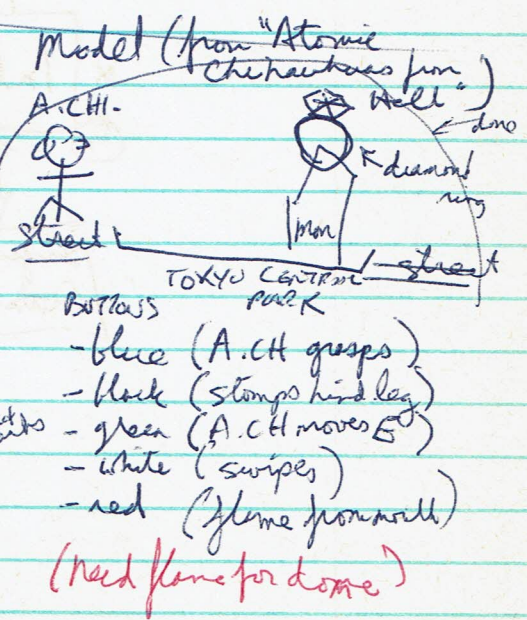 Model (from "Atomic
Chihuahuas from
Hell")
A.CHI.
dome
diamond
ring
Mon
street
street
TOKYO CENTRAL
PARK
BUTTONS
- blue (A.CH grasps)
- black (stomps hind leg)
- green (A.CH moves E)
- white (swipes)
- red (flame from mouth)
(need flame for dome)